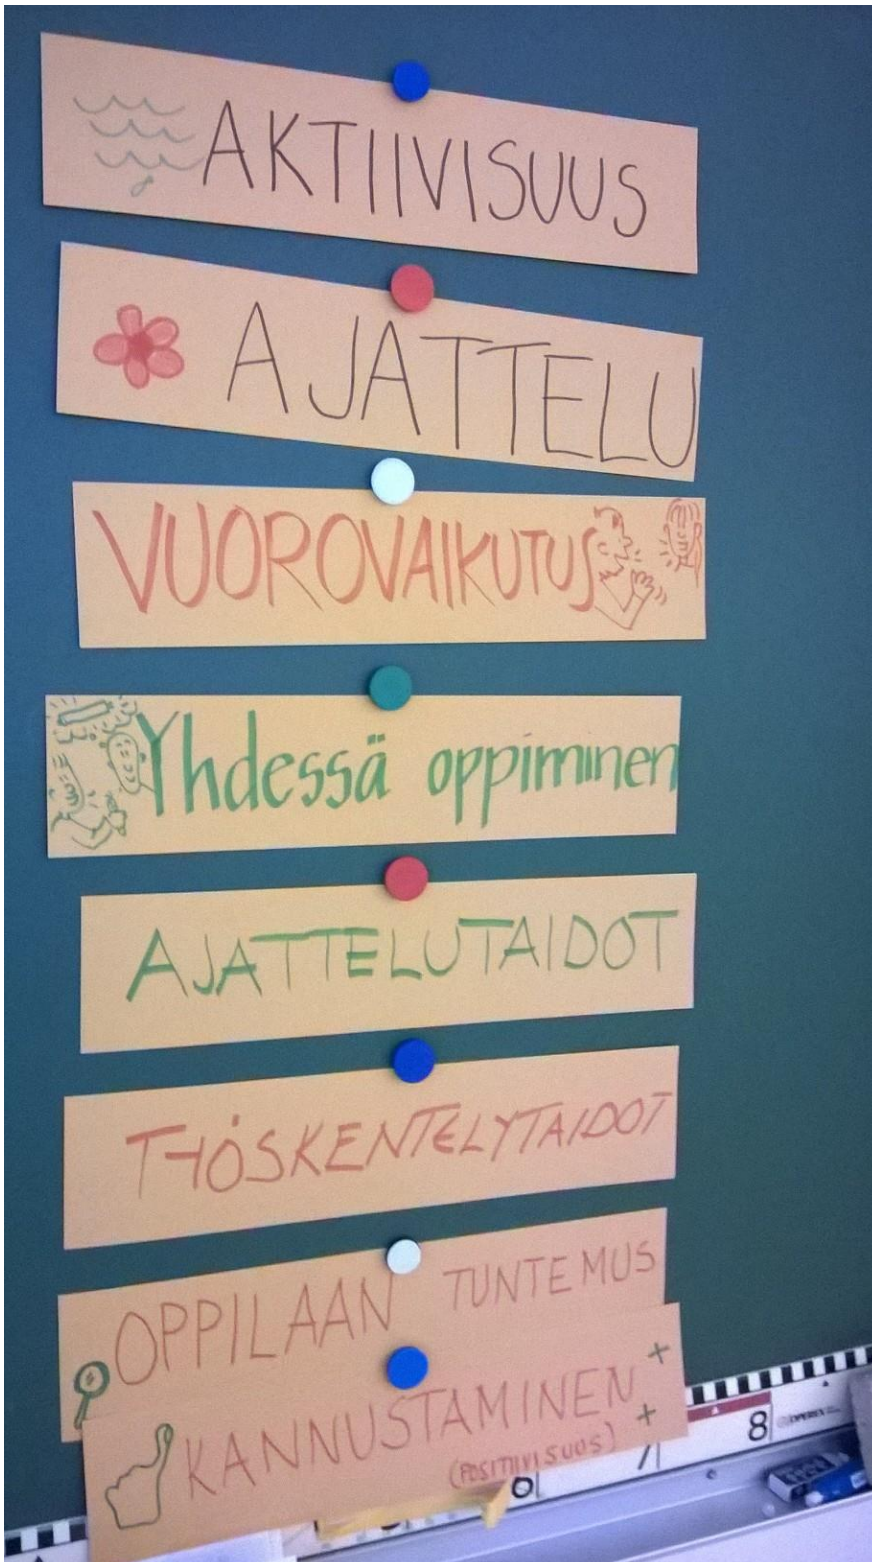 AKTIIVISUUS
AJATTELU
VUOROVAIKUTUS
Yhdessä oppiminen
AJATTELUTAIDOT
TYÖSKENTELYTAIDOT
OPPILAAN TUNTEMUS
KANNUSTAMINEN
(POSITIIVISUUS)
8
7
6